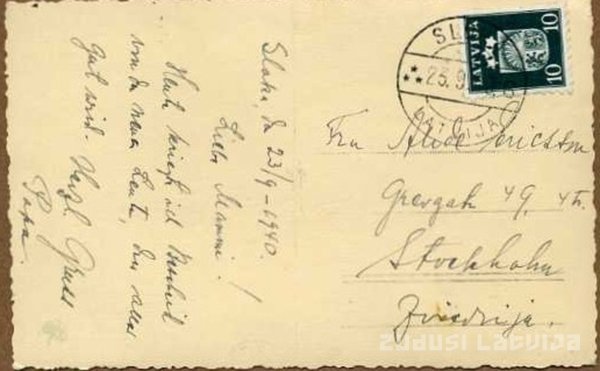 Sloka d. 23/9-1940.
Liebe Mammi!
Heute krieg ich Bescheid
von da neue Leute, das alles
Gut wird. Herzl. Gruss
Papa.
SL
25.9
LATVIJA
LATVIJA
10 10
Fru Alide
Grevgat. 49, 4 tr.
Stockholm
Zviedrija.
ZUDUSI LATVIJA